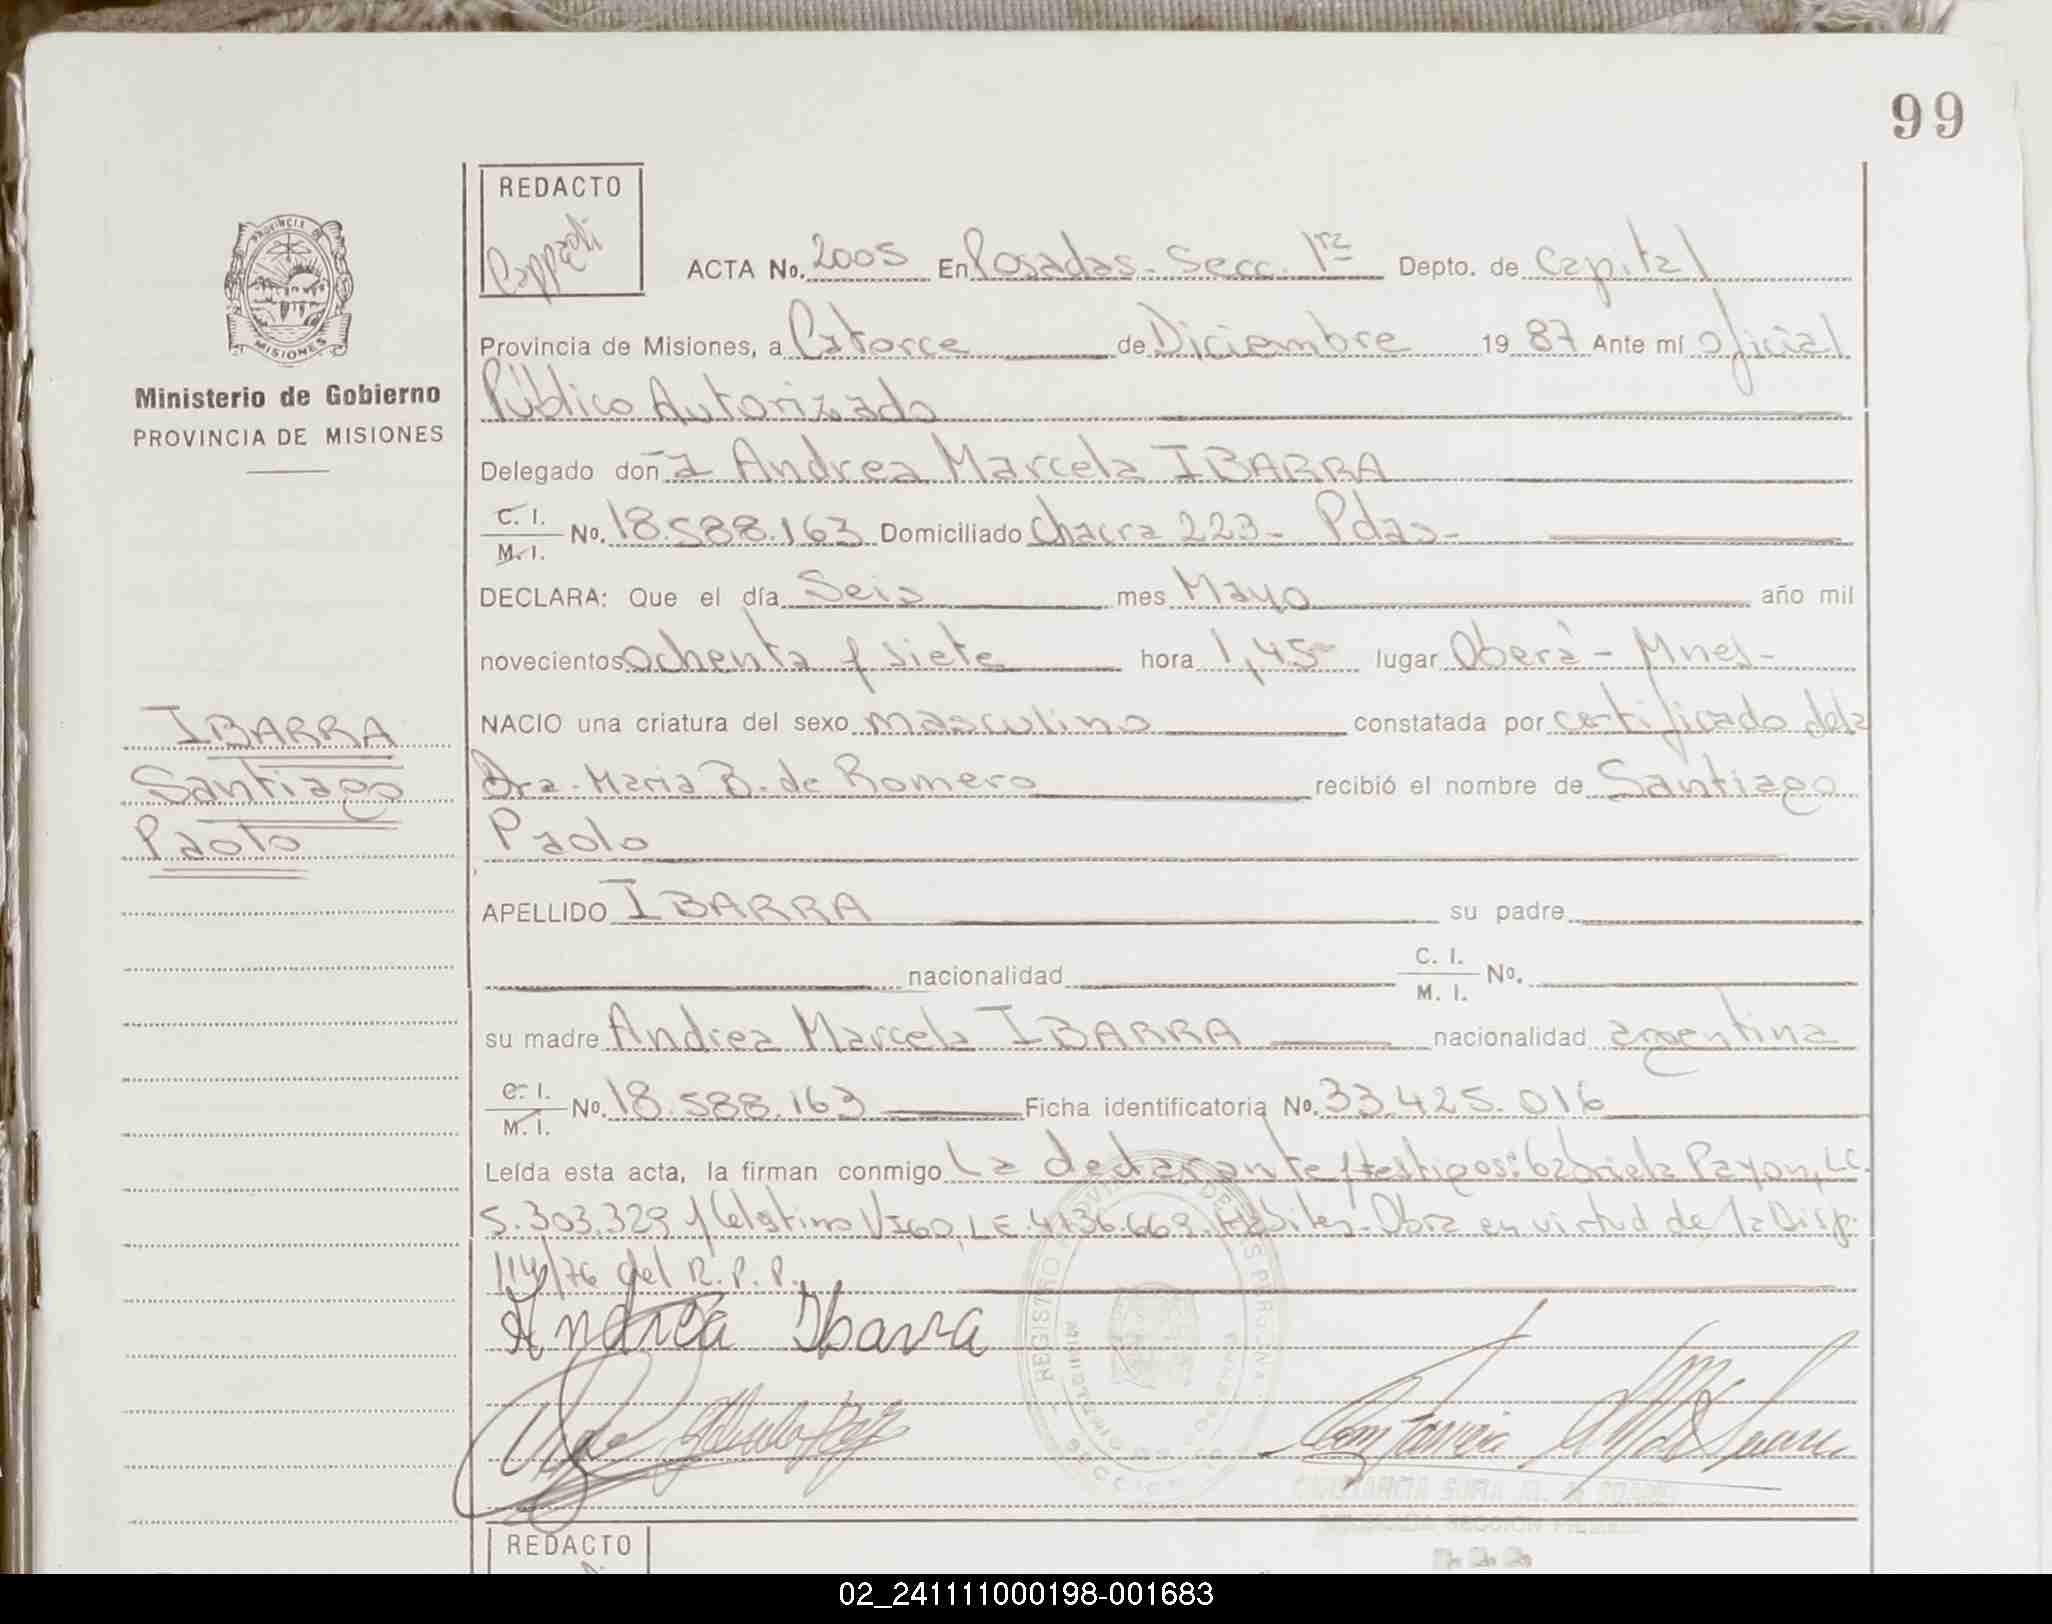 99
REDACTO
PROVINCIA D
MISIONES
Ministerio de Gobierno
PROVINCIA DE MISIONES
ACTA No. 2005 En Posadas - Secc. 1ra Depto. de Capital
Provincia de Misiones, a Catorce de Diciembre 19 87 Ante mí Oficial
Público Autorizado
Delegado don̄a Andrea Marcela IBARRA
C. I. M. I. No. 18.588.163 Domiciliado Chacra 223 - Pdas -
DECLARA: Que el día Seis mes Mayo año mil
novecientos ochenta y siete hora 1,45 lugar Oberá - Mnes -
NACIO una criatura del sexo masculino constatada por certificado de la
Dra. Maria B. de Romero recibió el nombre de Santiago
Paolo
IBARRA
Santiago
Paolo
APELLIDO IBARRA su padre
nacionalidad C. I. M. I. No.
su madre Andrea Marcela IBARRA nacionalidad argentina
C. I. M. I. No. 18.588.163 Ficha identificatoria No. 33.425.016
Leída esta acta, la firman conmigo La declarante y testigos: Gabriela Payon, LC.
5.303.329 y Celestino VIGO, LE. 4136.669. Hábiles - Obra en virtud de la Disp.
114/76 del R.P.P.
Andrea Ibarra
REDACTO
02_241111000198-001683